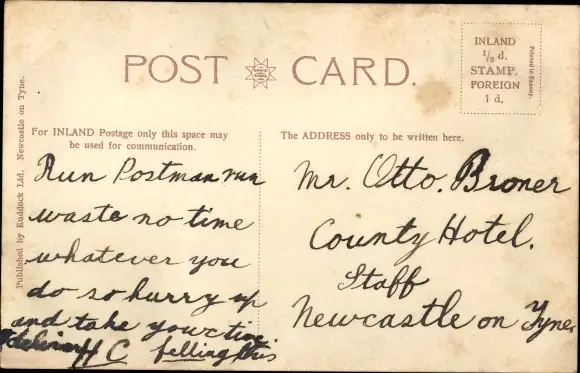 POST CARD.
INLAND
½ d.
STAMP.
FOREIGN
1 d.
Printed in Saxony.
Published by Ruddock Ltd. Newcastle on Tyne.
For INLAND Postage only this space may
be used for communication.
The ADDRESS only to be written here.
Run Postman run
waste no time
whatever you
do so hurry up
and take your time
delivering this
H C felling
Mr. Otto. Broner
County Hotel.
Staff
Newcastle on Tyne